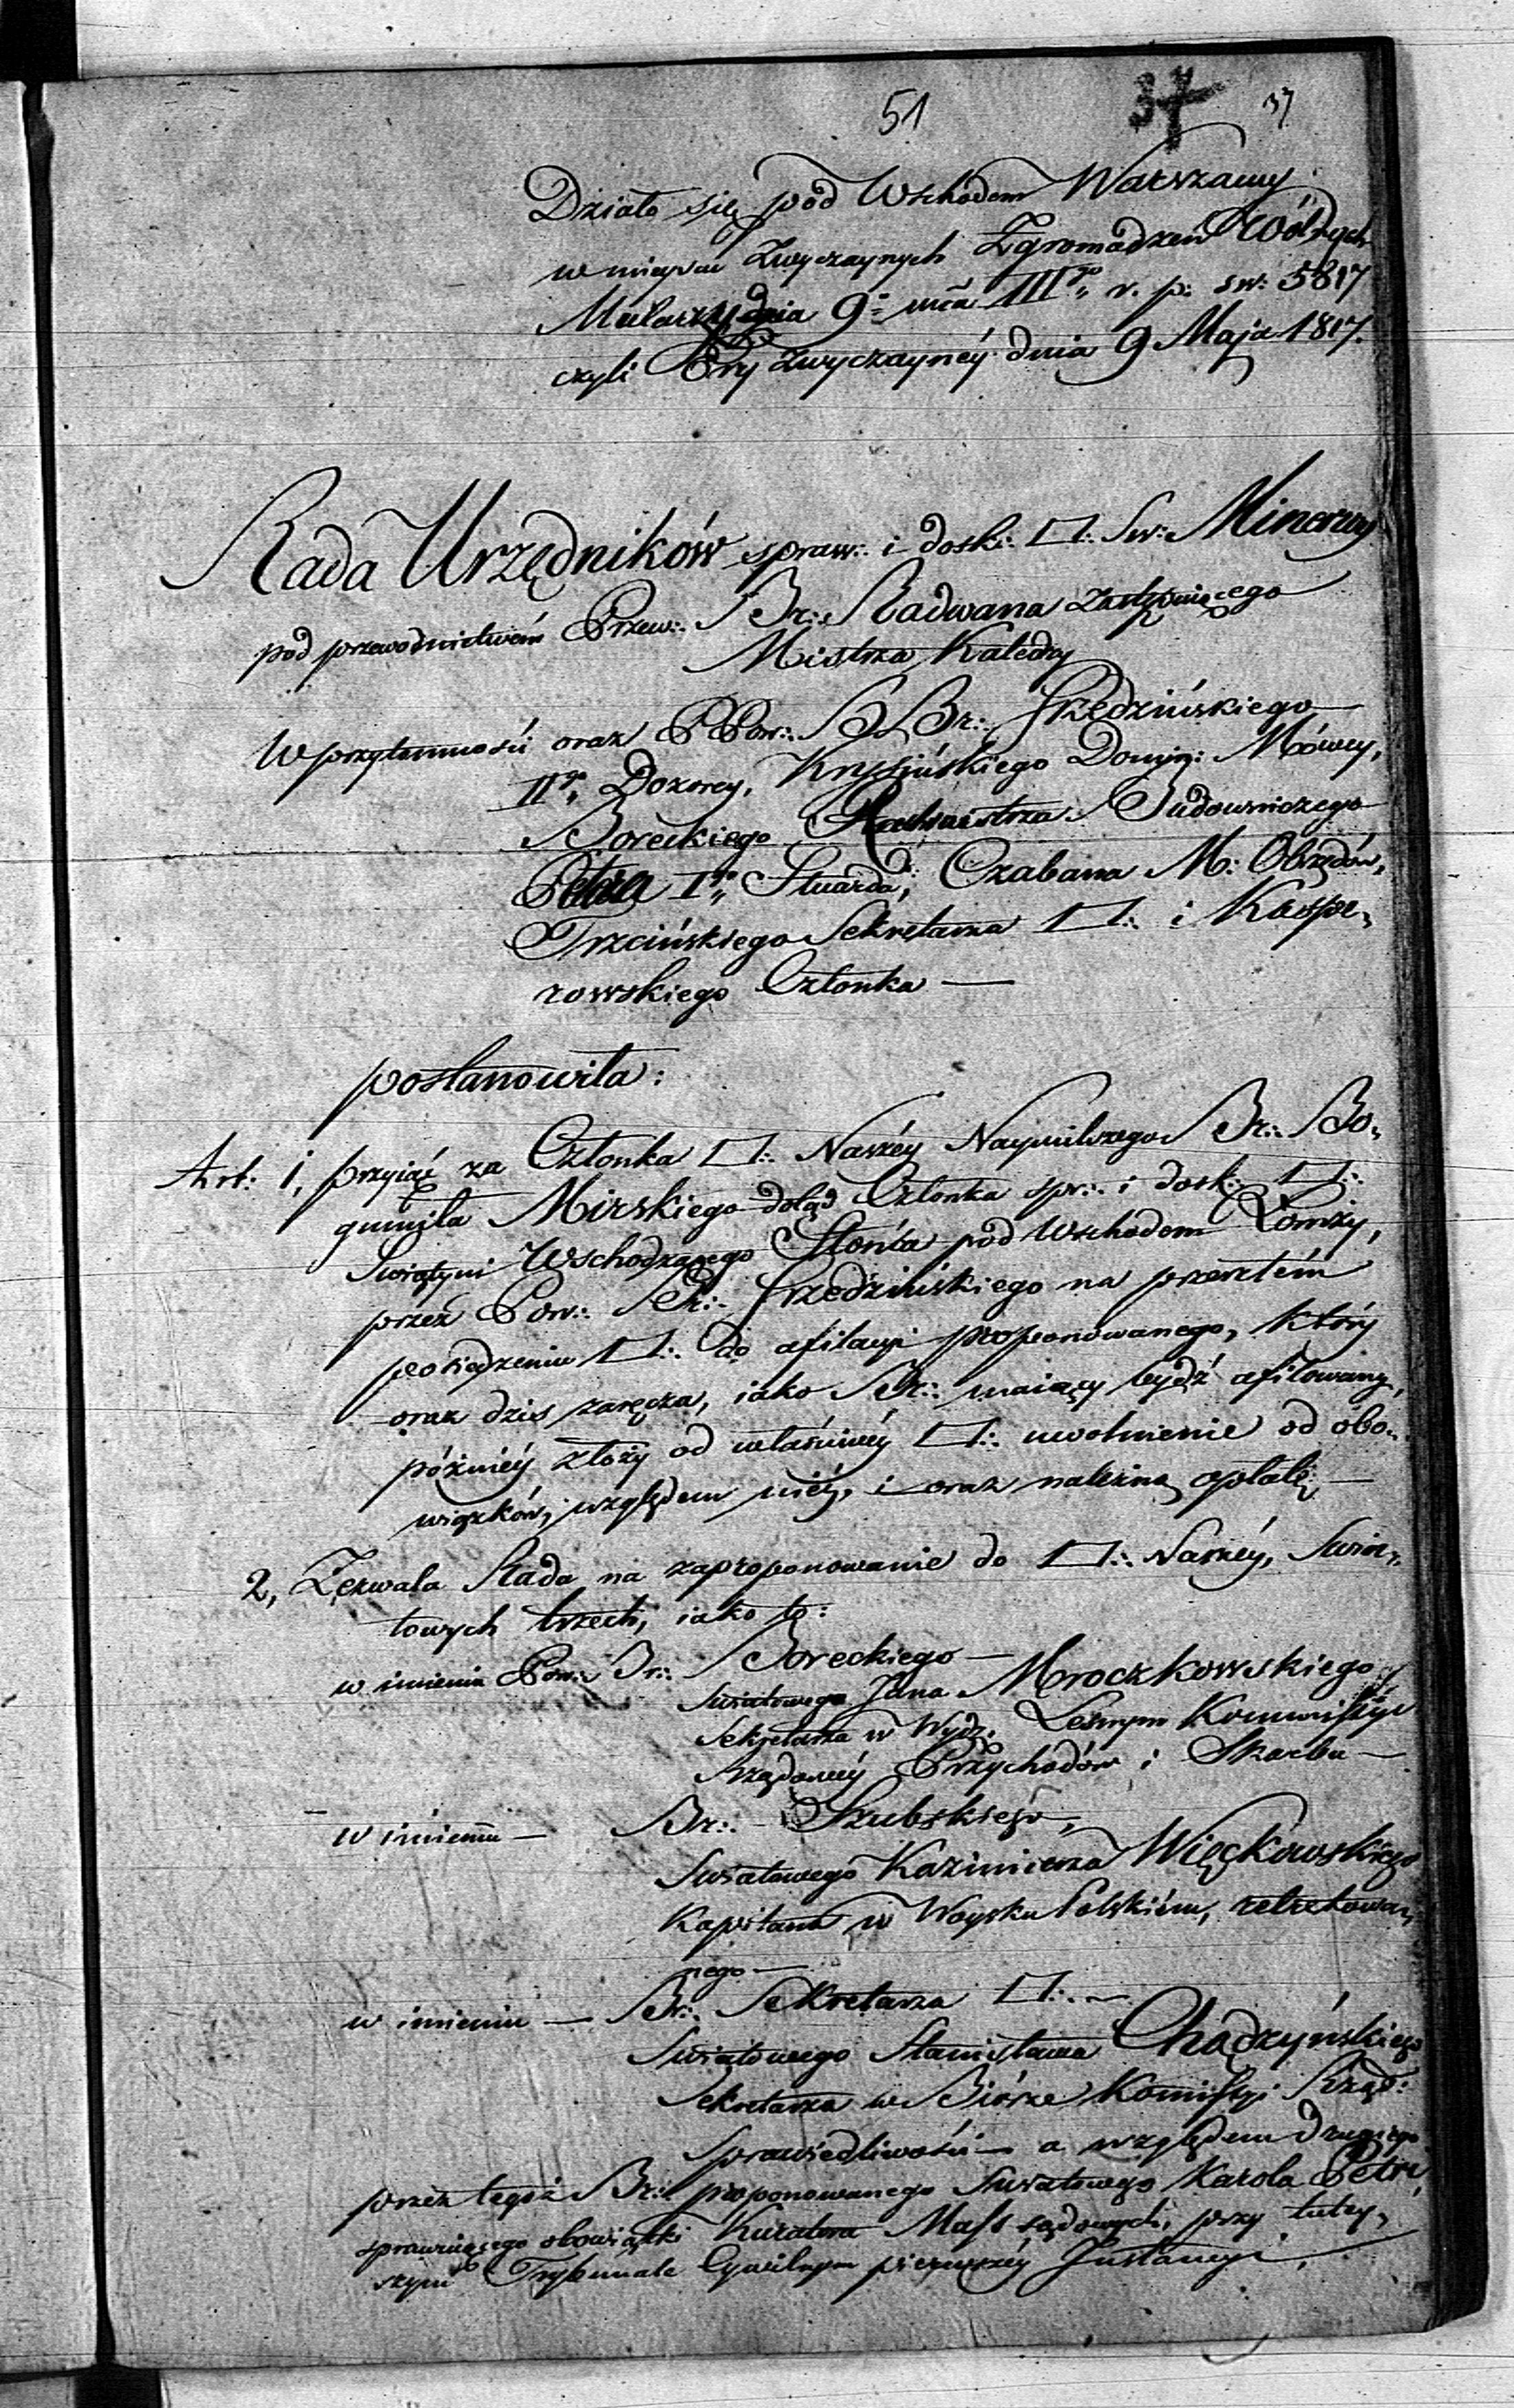 51 37 37
Działo się pod Wschodem Warszawy
w mieyscu Zwyczaynych Zgromadzeń Wólnych
Mularzy dnia 9º mca IIIgo r. p: św: 5817
czyli Ery Zwyczaynéy dnia 9 Maja 1817.
Rada Urzędników spraw:. i dosk:. □:. Św: Minerwy
pod przewodnictwem Przew:. Br:. Radwana zastępuiącego
Mistrza Katedry
W przytomności oraz PPow:. BBr:. Szedzińskiego
IIgo Dozorcy, Krysińskiego Domin: Mówcy,
Boreckiego Budowniczego
Petria Igo Stuarda, Czabana M: Obrzędów,
Trzcińskiego Sekretarza □:. i Kaspe„
rowskiego Członka —
postanowiła:
Art: 1, przyiąć za Członka □:. Naszéy Naymilszego Br:. Bo„
gumiła Mirskiego dotąd Członka spr:. i dosk:. □:.
Swiątyni Wschodzącego Słońca pod Wschodem Łomży,
przez Pow:. Br:. Szedzińskiego na przeszłém
posiedzeniu □:. do afilacyi proponowanego, który
oraz dzis zaręcza, iako Br:. maiący bydź afilowany,
póżniéy złoży od właściwéy □:. uwolnienie od obo„
wiązków, względem niéy, i oraz należną opłatę —
2, Zezwala Rada na zaproponowanie do □:. Naszéy, Swia„
towych trzech, iako to:
w imieniu Pow:. Br:. Boreckiego —
Swiatowego Jana Mroczkowskiego
Sekretarza w Wydz. Leśnym Kommissyi
Rządowéy Przychodów i Skarbu —
w imieniu — Br:. Skubskiego,
Swiatowego Kazimierza Więckowskiego
Kapitana w Woysku Polskiém, retretowa„
nego —
w imieniu — Br:. Sekretarza □:. —
Swiatowego Stanisława Chądzyńskiego
Sekretarza w Biórze Komissyi Rząd:
Sprawiedliwości — a względem drugiego
przez tegoż Br:. proponowanego Swiatowego Karola Petri,
sprawuiącego obowiązki Kuratora Mass sądowych, przy tutey„
szym Trybunale Cywilnym pierwszéy Instancyi,